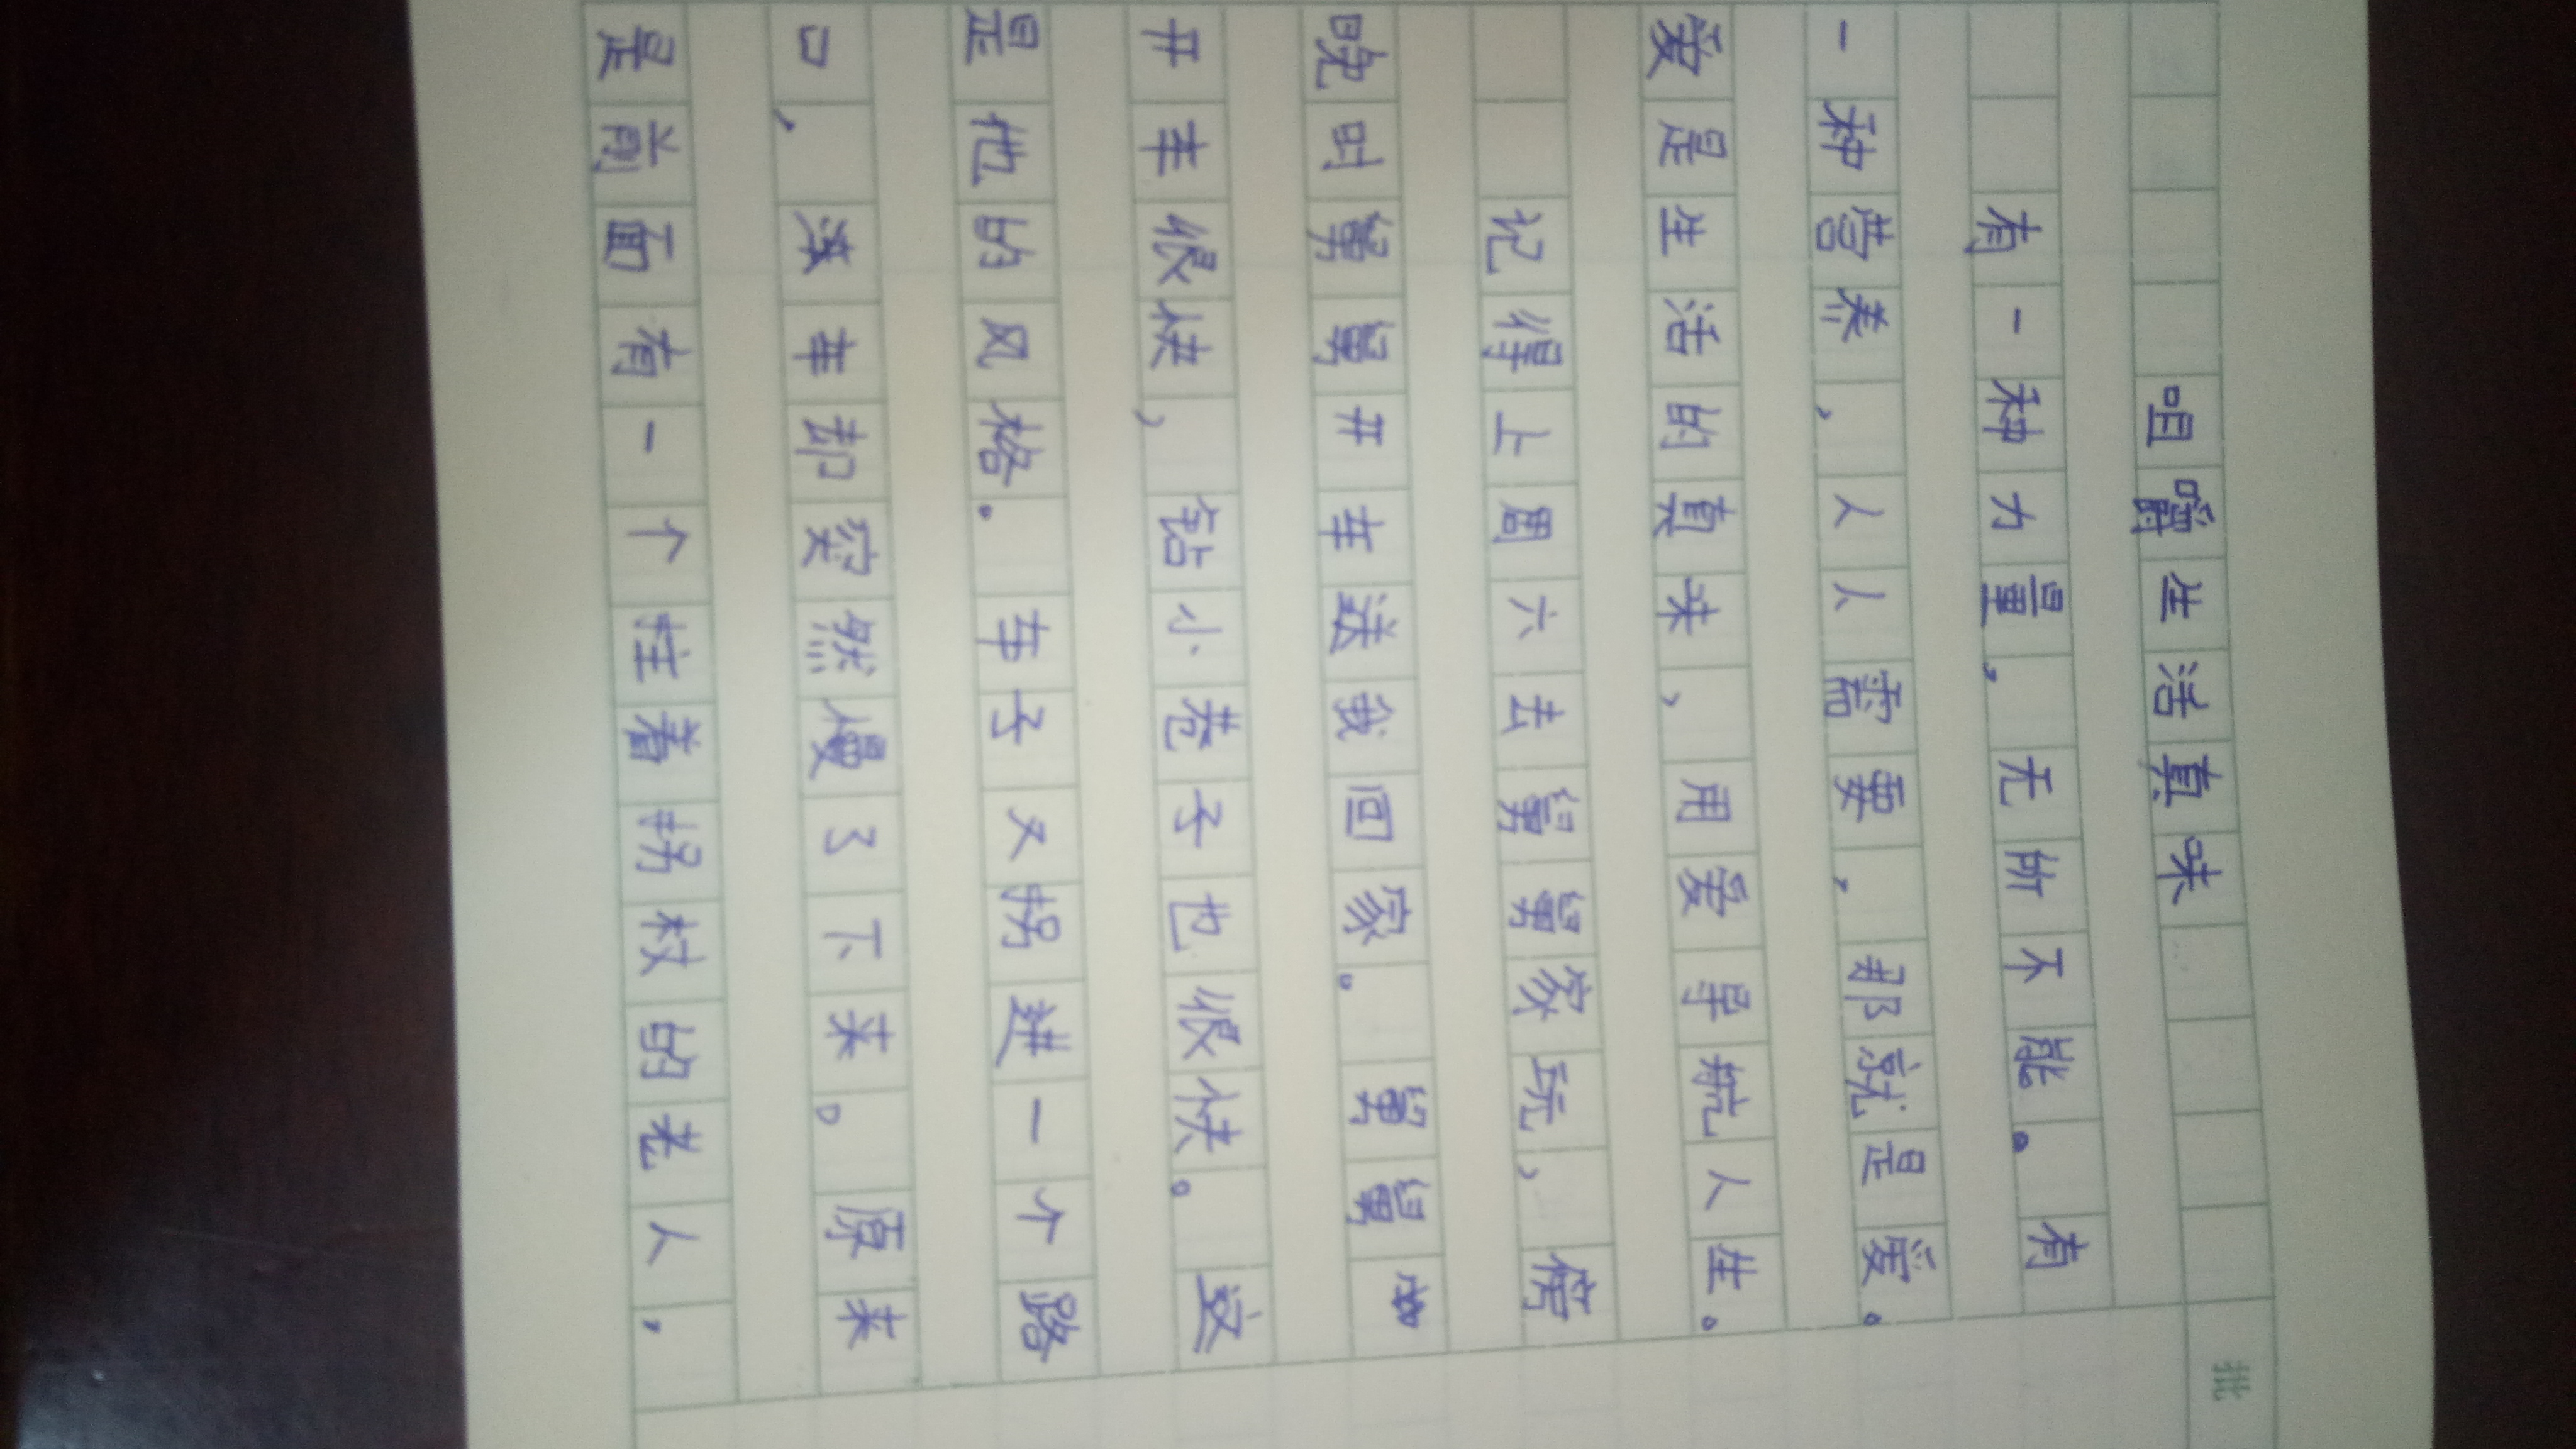 咀嚼生活真味
批
有一种力量，无所不能。有
一种营养，人人需要，那就是爱。
爱是生活的真味，用爱导航人生。
记得上周六去舅舅家玩，傍
晚时舅舅开车送我回家。舅舅
开车很快，钻小巷子也很快。这
是他的风格。车子又拐进一个路
口，汽车却突然慢了下来。原来
是前面有一个拄着拐杖的老人，